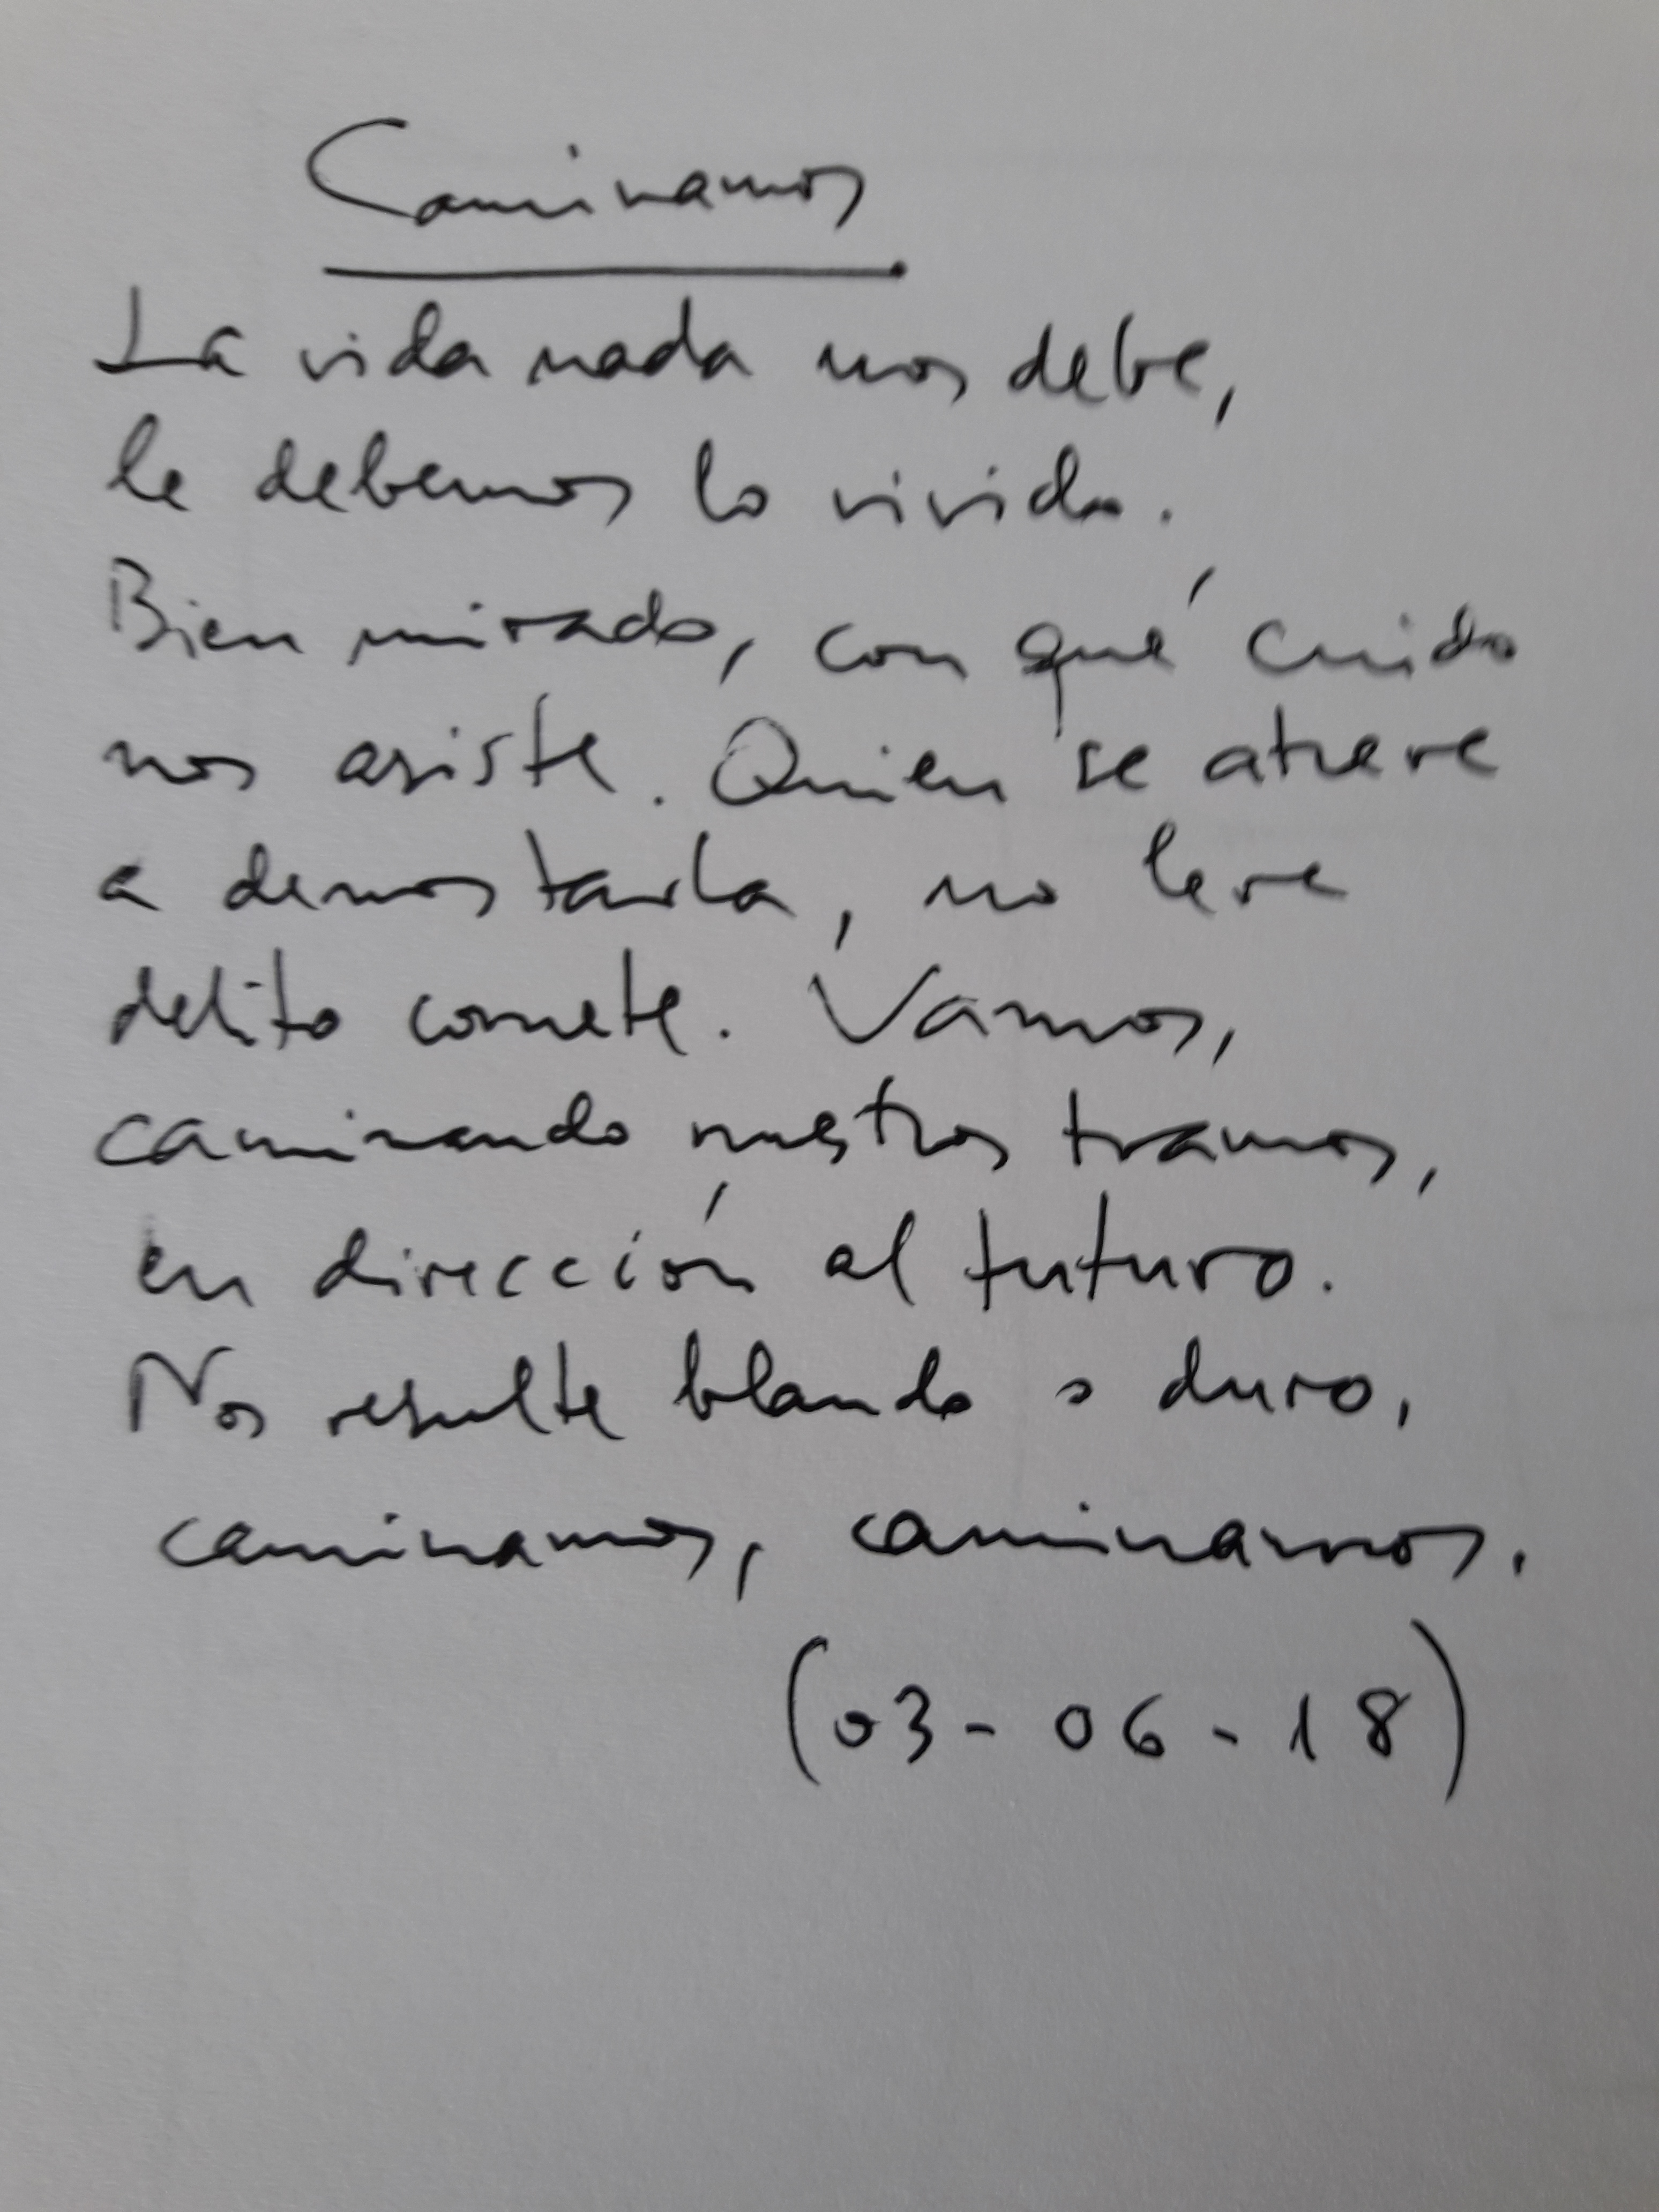 Caminamos
La vida nada nos debe,
le debemos lo vivido.
Bien mirado, con qué cuido
nos asiste. Quien se atreve
a demostarla, no leve
delito comete. Vamos,
caminando nuestros tramos,
en dirección al futuro.
Nos resulte blando o duro,
caminamos, caminamos.
(03-06-18)